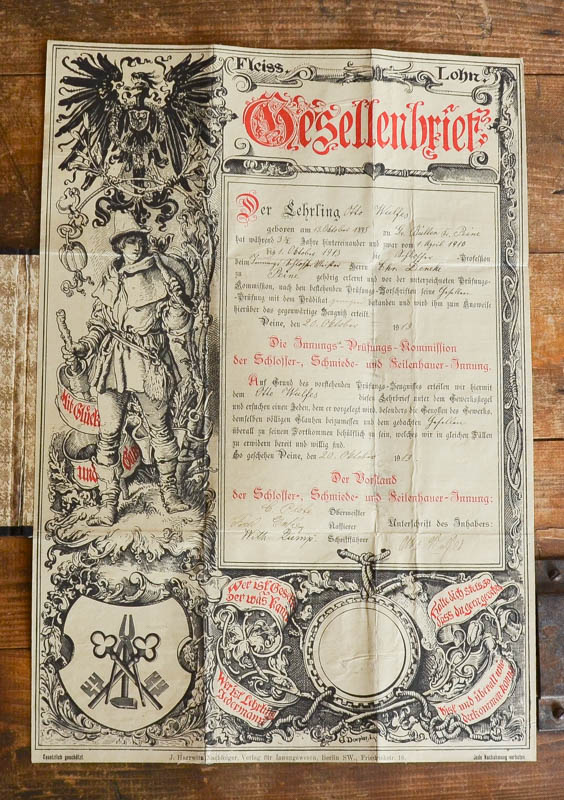 Fleiss. Lohn.
Gesellenbrief.
Der Lehrling Otto Wulfes
geboren am 13. Oktober 1895 zu Gr. Bülten Kr. Peine
hat während 3½ Jahre hintereinander und zwar vom 1. April 1910
bis 1. Oktober 1913 die Schlosser-Profession
beim Innungs-Schlosser-Meister Herrn Chr. Deneke
zu Peine gehörig erlernt und vor der unterzeichneten Prüfungs-
Kommission, nach den bestehenden Prüfungs-Vorschriften seine Gesellen-
Prüfung mit dem Prädikat bestanden und wird ihm zum Ausweise
hierüber das gegenwärtige Zeugniß erteilt.
Peine, den 20. Oktober 1913
Die Innungs-Prüfungs-Kommission
der Schlosser-, Schmiede- und Feilenhauer-Innung.
Auf Grund des vorstehenden Prüfungs-Zeugnisses erteilen wir hiermit
dem Otto Wulfes diesen Lehrbrief unter dem Gewerkssiegel
und ersuchen einen Jeden, dem er vorgelegt wird, besonders die Genossen des Gewerks,
demselben völligen Glauben beizumessen und dem gedachten Gesellen
überall zu seinem Fortkommen behülflich zu sein, welches wir in gleichen Fällen
zu erwidern bereit und willig sind.
So geschehen Peine, den 20. Oktober 1913
Der Vorstand
der Schlosser-, Schmiede- und Feilenhauer-Innung:
Obermeister
Kassierer Unterschrift des Inhabers:
Wilh. Schriftführer
Mit Glück
und
Wer ist Gesell
der was kann
Wer ist Lehrling
Jedermann
Halte dich
dass du gern
Bist und überall
Gesetzlich geschützt.
J. Harrwitz Nachfolger, Verlag für Innungswesen, Berlin SW., Friedrichstr. 16.
Jede Nachahmung verboten.